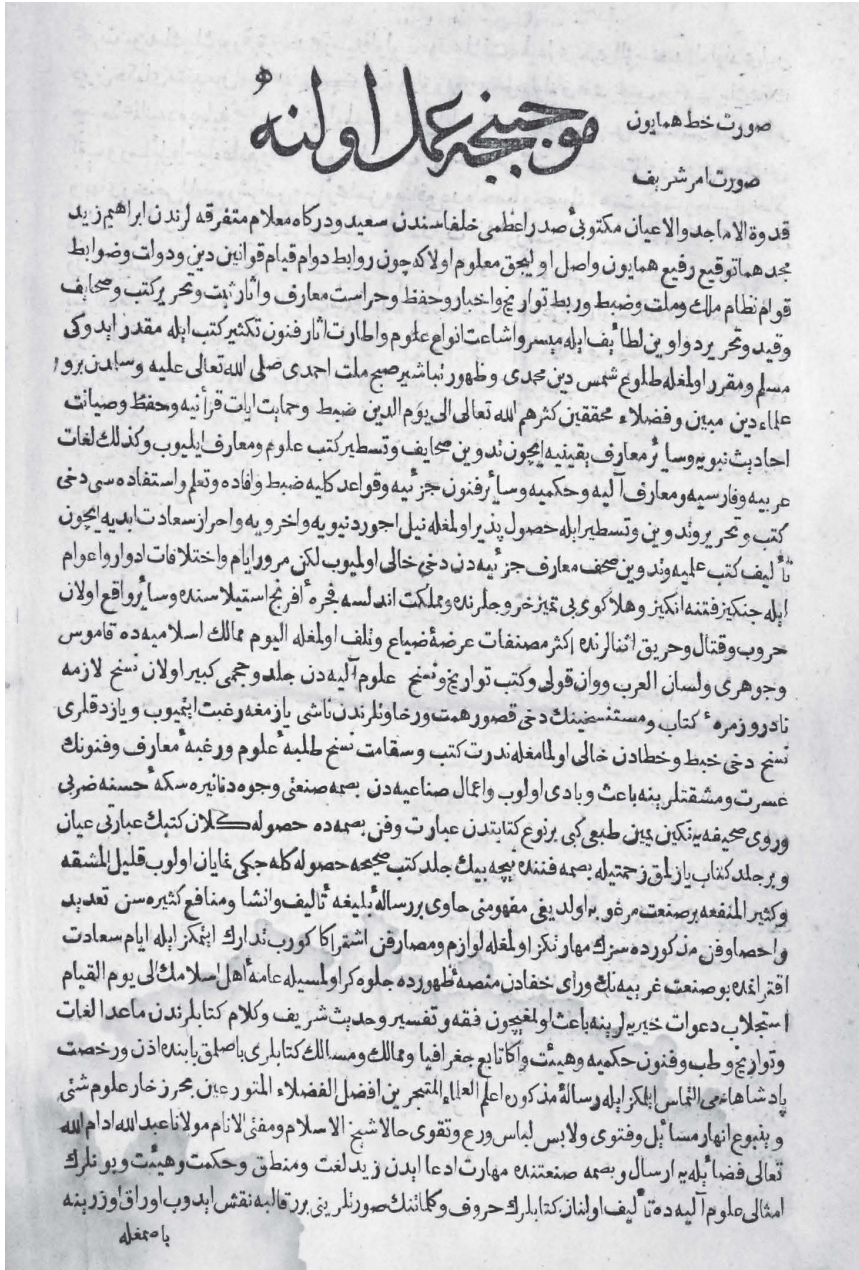 صورت خط همایون
موجبنجه عمل اولنه
صورت امر شریف
قدوة الاماجد والاعیان مکتوبئ صدر اعظمی خلفاسندن سعید ودرکاه معلام متفرقه لرندن ابراهیم زید
مجدهما توقیع رفیع همایون واصل اولیجق معلوم اولا که چون روابط دوام قیام قوانین دین ودولت وضوابط
قوام نظام ملك وملت وضبط وربط تواریخ واخبار وحفظ وحراست معارف واثار ثبت وتحریر کتب وصحایف
وقید وتحریر دواوین لطائف ایله میسر واشاعت انواع علوم واطارت اثار فنون تکثیر کتب ایله مقدر ایدوکی
مسلم ومقرر اولمغله طلوع شمس دین محمدی وظهور تباشیر صبح ملت احمدی صلی الله تعالی علیه وسلمدن برو
علماء دین مبین وفضلاء محققین کثرهم الله تعالی الی یوم الدین ضبط وحمایت ایات قرآنیه وحفظ وصیانت
احادیث نبویه وسائر معارف یقینیه ایچون تدوین صحایف وتسطیر کتب علوم ومعارف ایلیوب وکذلك لغات
عربیه وفارسیه ومعارف آلیه وحکمیه وسائر فنون جزئیه وقواعد کلیه ضبط وافاده وتعلم واستفاده سی دخی
کتب وتحریر وتدوین وتسطیر ایله حصول پذیر اولمغله نیل اجور دنیویه واخرویه واحراز سعادت ابدیه ایچون
تألیف کتب علمیه وتدوین صحف معارف جزئیه دن دخی خالی اولمیوب لکن مرور ایام واختلافات ادوار واعوام
ایله جنکیز فتنه انکیز وهلاکوی بی تمیز خروجلرنده ومملکت اندلسه فجرۀ افرنج استیلاسنده وسائر واقع اولان
حروب وقتال وحریق اثنالرنده اکثر مصنفات عرضۀ ضیاع وتلف اولمغله الیوم ممالك اسلامیه ده قاموس
وجوهری ولسان العرب ووان قولی وکتب تواریخ ونسخ علوم آلیه دن جلد وحجمی کبیر اولان نسخ لازمه
نادر وزمرۀ کتاب ومستنسخینك دخی قصور همت ورخاوتلرندن ناشی یازمغه رغبت ایتمیوب ویازدقلری
نسخ دخی خبط وخطادن خالی اولمامغله ندرت کتب وسقامت نسخ طلبۀ علوم ورغبۀ معارف وفنونك
عسرت ومشقتلرینه باعث وبادی اولوب واعمال صناعیه دن بصمه صنعتی وجوه دنانیره سکۀ حسنه ضربی
وروی صحیفه یه نکین یمین طبعی کبی بر نوع کتابتدن عبارت وفن بصمه ده حصوله کلان کتبك عبارتی عیان
وبر جلد کتاب یازلمق زحمتیله بصمه فننده نیچه بیك جلد کتب صحیحه حصوله کله جکی نمایان اولوب قلیل المشقه
وکثیر المنفعه بر صنعت مرغوبه اولدیغی مفهومنی حاوی بر رسالۀ بلیغه تألیف وانشا ومنافع کثیره سن تعدید
واحصا وفن مذکورده سزك مهارتکز اولمغله لوازم ومصارفن اشتراکا کورب تدارك ایتمکز ایله ایام سعادت
اقترانمده بو صنعت غریبه نك ورای خفادن منصۀ ظهورده جلوه کر اولمسیله عامۀ اهل اسلامك الی یوم القیام
استجلاب دعوات خیریه لرینه باعث اولمغیچون فقه وتفسیر وحدیث شریف وکلام کتابلرندن ماعدا لغات
وتواریخ وطب وفنون حکمیه وهیئت واکا تابع جغرافیا وممالك ومسالك کتابلری باصلمق بابنده اذن ورخصت
پادشاهانه می التماس ایلمکز ایله رسالۀ مذکوره اعلم العلماء المتبحرین افضل الفضلاء المتورعین بحر زخار علوم شتی
وینبوع انهار مسائل وفتوی ولابس لباس ورع وتقوی حالا شیخ الاسلام ومفتی الانام مولانا عبد الله ادام الله
تعالی فضائله یه ارسال وبصمه صنعتنده مهارت ادعا ایدن زید لغت ومنطق وحکمت وهیئت وبونلرك
امثالی علوم آلیه ده تألیف اولنان کتابلرك حروف وکلماتنك صورتلرینی برر قالبه نقش ایدوب اوراق اوزرینه
باصمغله